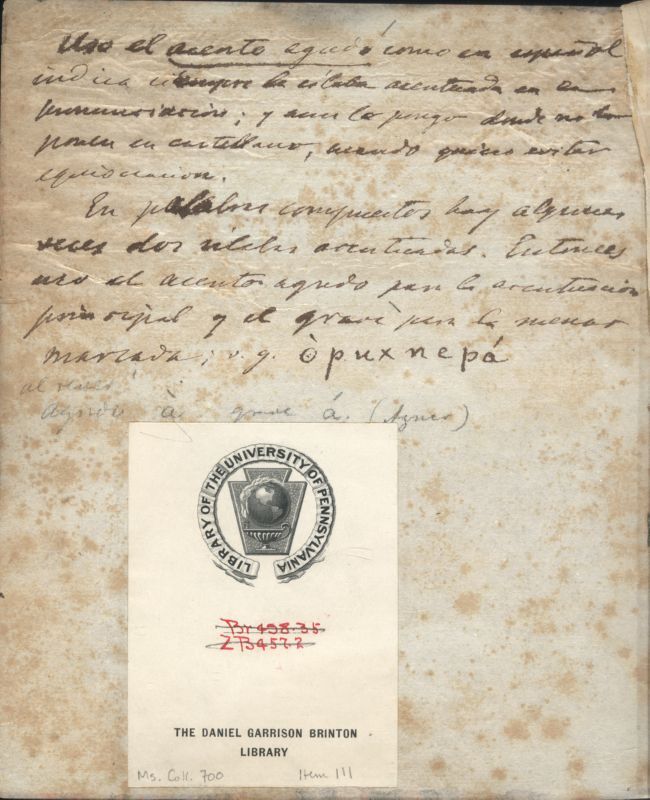 Uso el acento agudó como en español
indica siempre la sílaba acentuada en la
pronunciacion; y aun lo pongo donde no lo
ponen en castellano, cuando quiero evitar
equivocacion.
En palabras compuestas hay algunas
veces dos sílabas acentuadas. Entonces
uso el acento agudo para la acentuacion
principal y el grave para la menos
marcada; v. g. òpuxnepá
al reves
Agudo à. grave á. (Agnes)
LIBRARY OF THE UNIVERSITY OF PENNSYLVANIA
Br498.35
ZB457.2
THE DANIEL GARRISON BRINTON
LIBRARY
Ms. Coll. 700 Item 111